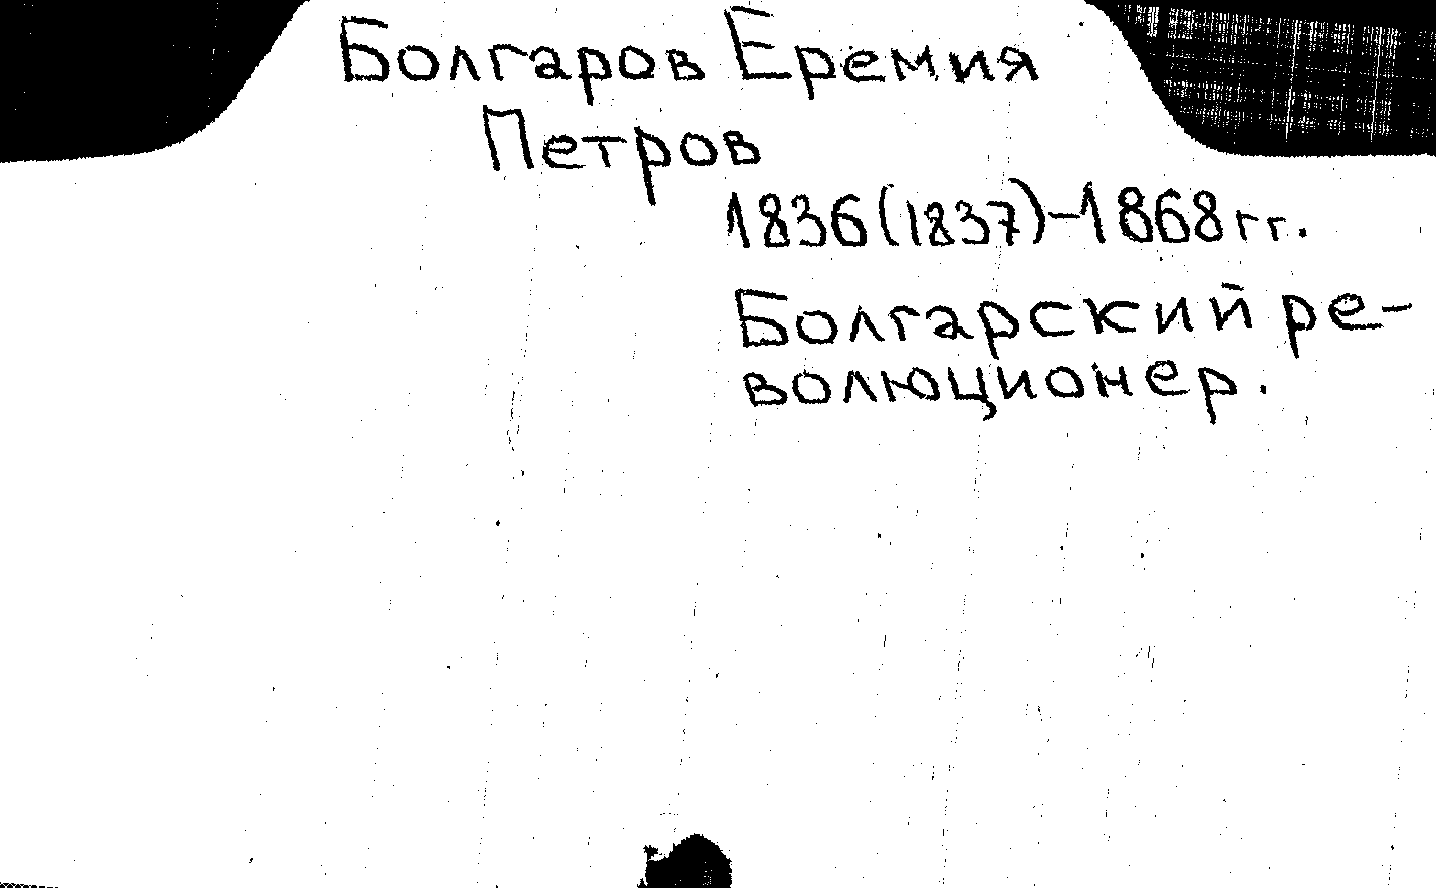 Болгаров Еремия
Петров
1836(1837)-1868 гг.
Болгарский ре-
волюционер.